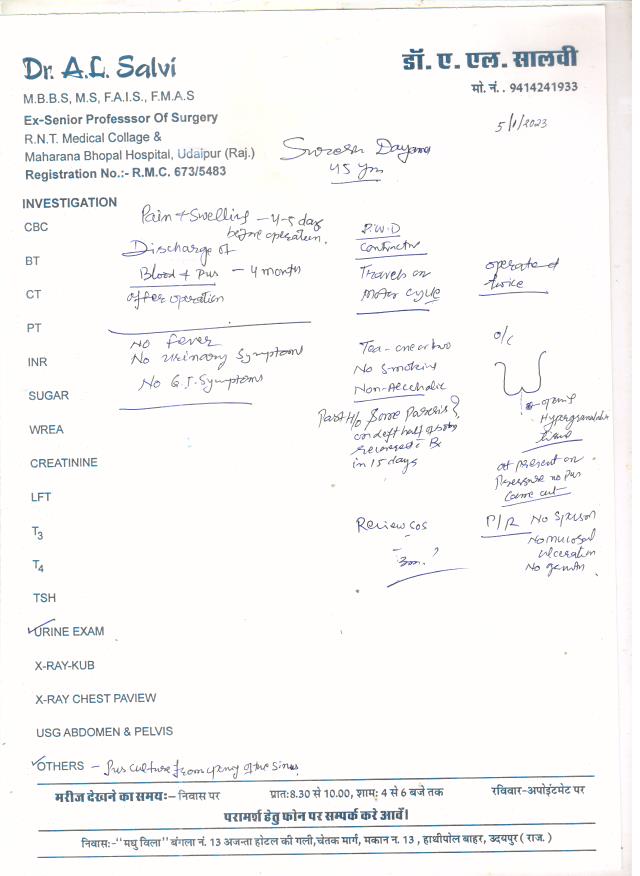 Dr. A.L. Salvi
डॉ. ए. एल. सालवी
M.B.B.S, M.S, F.A.I.S., F.M.A.S
मो. नं. . 9414241933
Ex-Senior Professsor Of Surgery
R.N.T. Medical Collage &
Maharana Bhopal Hospital, Udaipur (Raj.)
Registration No.:- R.M.C. 673/5483
5/1/2023
45 yrs
INVESTIGATION
CBC
BT
CT
PT
INR
SUGAR
WREA
CREATININE
LFT
T3
T4
TSH
URINE EXAM
X-RAY-KUB
X-RAY CHEST PAVIEW
USG ABDOMEN & PELVIS
OTHERS - Pus culture from opening of the Sinus
Pain + Swelling - 4-5 day
before operation.
Discharge of
Blood + Pus - 4 month
after operation
No fever
No Urinary Symptoms
No G.I. Symptoms
P.W.D
Contractor
Travels on
Motor Cycle
operated
twice
Tea - one or two
No Smoking
Non-Alcoholic
Past H/o Some Paresis?
on left half of body
recovered Rx
in 15 days
O/E
Hypergranulation
tissue
at present on
Pressure no pus
came out
P/R No Spasm
No mucosal
ulceration
No
Review
मरीज देखने का समय:– निवास पर
प्रात: 8.30 से 10.00, शाम: 4 से 6 बजे तक
रविवार-अपोइंटमेट पर
परामर्श हेतु फोन पर सम्पर्क करे आवें।
निवास:-"मधु विला" बंगला नं. 13 अजन्ता होटल की गली,चेतक मार्ग, मकान न. 13 , हाथीपोल बाहर, उदयपुर ( राज. )